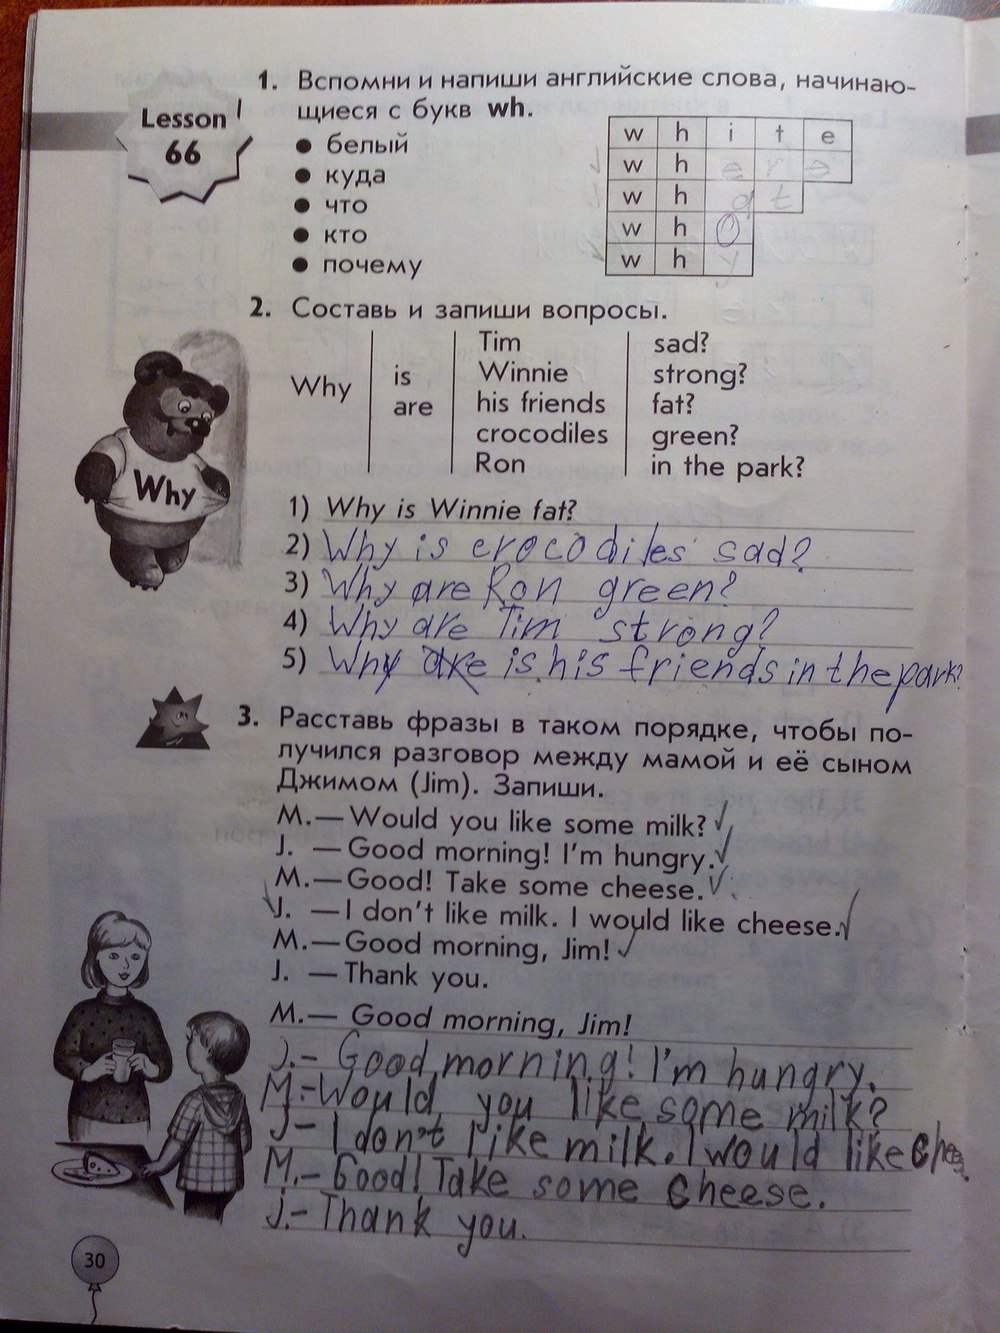 Lesson
66
1. Вспомни и напиши английские слова, начинаю-
щиеся с букв wh.
● белый
● куда
● что
● кто
● почему
w h i t e
w h e r e
w h a t
w h o
w h y
2. Составь и запиши вопросы.
Why
is
are
Tim
Winnie
his friends
crocodiles
Ron
sad?
strong?
fat?
green?
in the park?
Why
1) Why is Winnie fat?
2) Why is crocodiles sad?
3) Why are Ron green?
4) Why are Tim strong?
5) Why is his friends in the park?
3. Расставь фразы в таком порядке, чтобы по-
лучился разговор между мамой и её сыном
Джимом (Jim). Запиши.
M.— Would you like some milk?
J. — Good morning! I'm hungry.
M.— Good! Take some cheese.
J. — I don't like milk. I would like cheese.
M.— Good morning, Jim!
J. — Thank you.
M.— Good morning, Jim!
J.- Good morning! I'm hungry.
M.- Would you like some milk?
J- I don't like milk. I would like chees.
M.- Good! Take some cheese.
J.- Thank you.
30